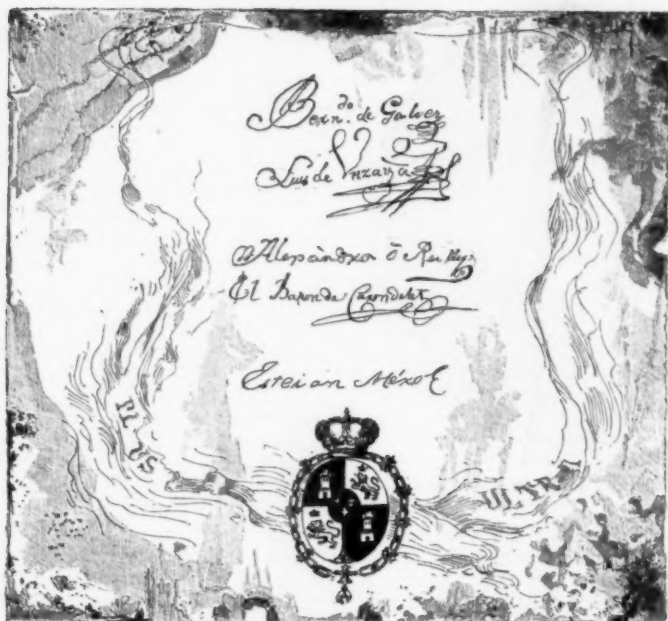 Bern.do de Galvez
Luis de Unzaga
Alexandro ô Reilly
El Baron de Carondelet
Estevan Miró
PLUS
ULTRA